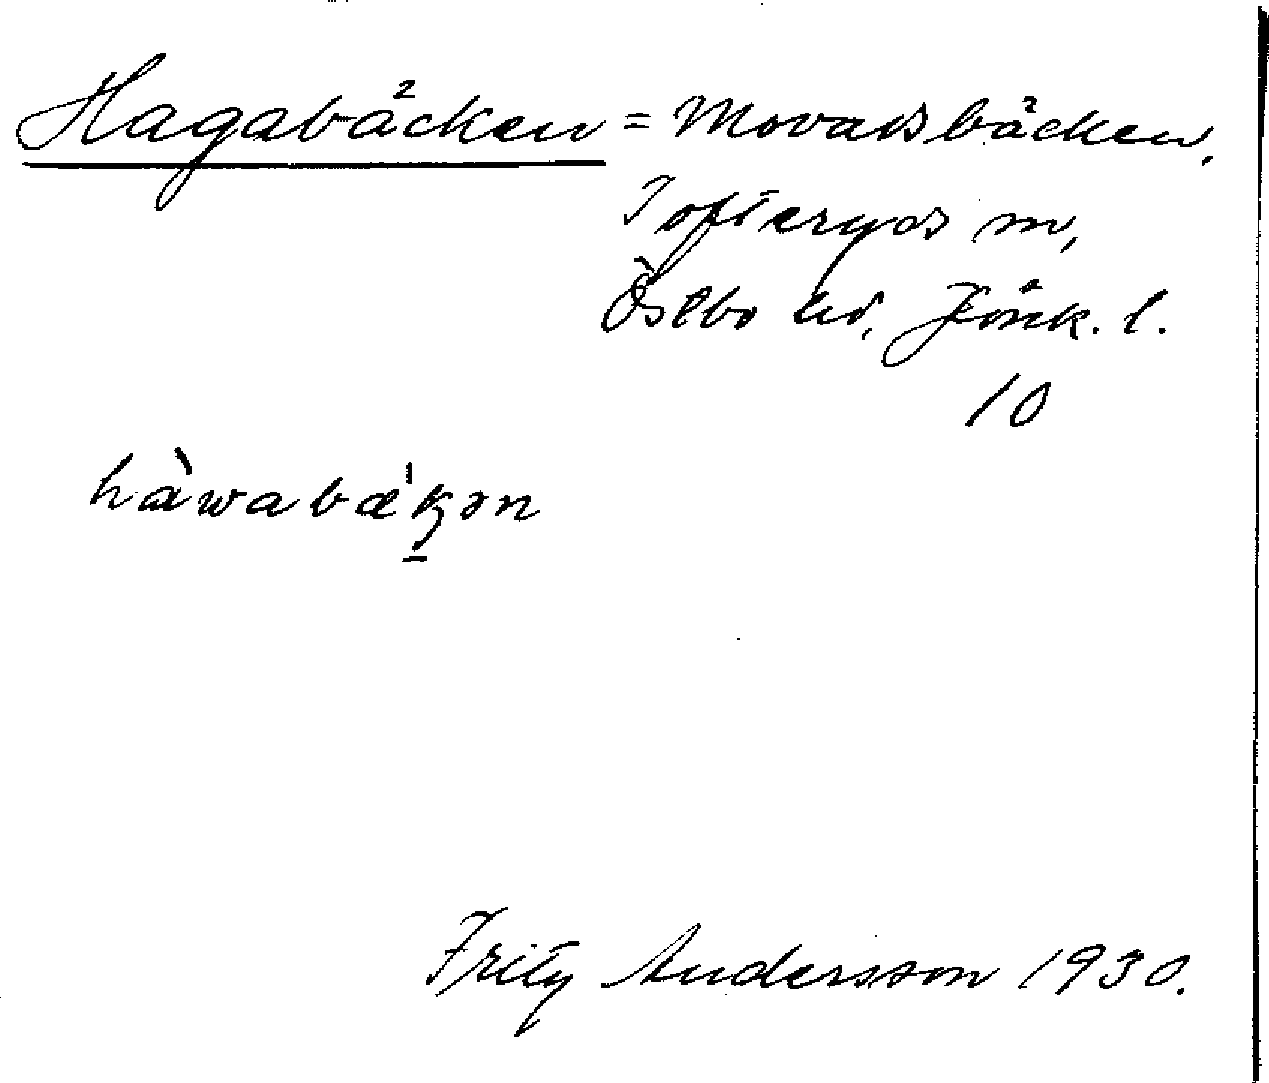 Hagabäcken = Movadsbäcken,
Tofteryds sn,
Östbo hd, Jönk. l.
10
hàwabækən
Fritz Andersson 1930.